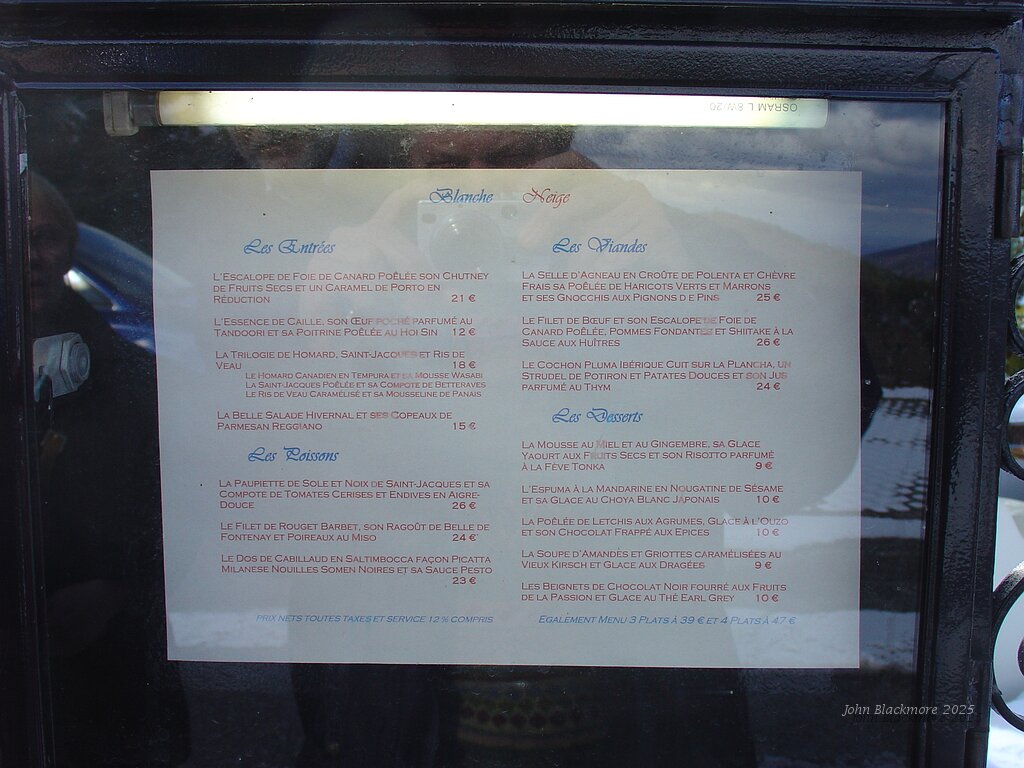 OSRAM L 8W/20
Blanche Neige
Les Entrées
L'Escalope de Foie de Canard Poêlée son Chutney
de Fruits Secs et un Caramel de Porto en
Réduction 21 €
L'Essence de Caille, son Œuf poché parfumé au
Tandoori et sa Poitrine Poêlée au Hoi Sin 12 €
La Trilogie de Homard, Saint-Jacques et Ris de
Veau 18 €
Le Homard Canadien en Tempura et sa Mousse Wasabi
La Saint-Jacques Poêlée et sa Compote de Betteraves
Le Ris de Veau Caramélisé et sa Mousseline de Panais
La Belle Salade Hivernal et ses Copeaux de
Parmesan Reggiano 15 €
Les Poissons
La Paupiette de Sole et Noix de Saint-Jacques et sa
Compote de Tomates Cerises et Endives en Aigre-
Douce 26 €
Le Filet de Rouget Barbet, son Ragoût de Belle de
Fontenay et Poireaux au Miso 24 €
Le Dos de Cabillaud en Saltimbocca façon Picatta
Milanese Nouilles Somen Noires et sa Sauce Pesto
23 €
Prix nets toutes taxes et service 12 % compris
Les Viandes
La Selle d'Agneau en Croûte de Polenta et Chèvre
Frais sa Poêlée de Haricots Verts et Marrons
et ses Gnocchis aux Pignons de Pins 25 €
Le Filet de Bœuf et son Escalope de Foie de
Canard Poêlée, Pommes Fondantes et Shiitake à la
Sauce aux Huîtres 26 €
Le Cochon Pluma Ibérique Cuit sur la Plancha, un
Strudel de Potiron et Patates Douces et son Jus
parfumé au Thym 24 €
Les Desserts
La Mousse au Miel et au Gingembre, sa Glace
Yaourt aux Fruits Secs et son Risotto parfumé
à la Fève Tonka 9 €
L'Espuma à la Mandarine en Nougatine de Sésame
et sa Glace au Choya Blanc Japonais 10 €
La Poêlée de Letchis aux Agrumes, Glace à l'Ouzo
et son Chocolat Frappé aux Epices 10 €
La Soupe d'Amandes et Griottes caramélisées au
Vieux Kirsch et Glace aux Dragées 9 €
Les Beignets de Chocolat Noir fourré aux Fruits
de la Passion et Glace au Thé Earl Grey 10 €
Egalement Menu 3 Plats à 39 € et 4 Plats à 47 €
John Blackmore 2025